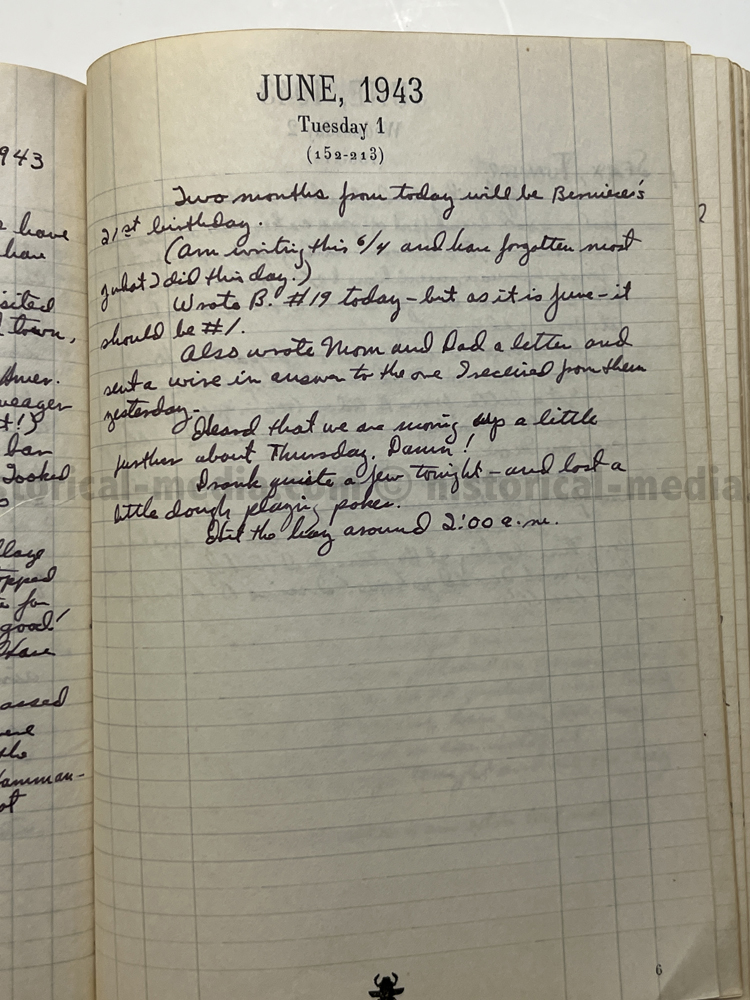 943
have
have
sited
town,
Amer.
ban
looked
opped
for
good!
Have
passed
the
JUNE, 1943
Tuesday 1
(152-213)
Two months from today will be Berniece's
21st birthday.
(am writing this 6/4 and have forgotten most
of what I did this day.)
Wrote B. #19 today - but as it is June - it
should be #1.
Also wrote Mom and Dad a letter and
sent a wire in answer to the one I received from them
yesterday.
Heard that we are moving up a little
further about Thursday. Damn!
Drank quite a few tonight - and lost a
little dough playing poker.
Hit the hay around 2:00 a.m.
2
6
historical-media.com © historical-media